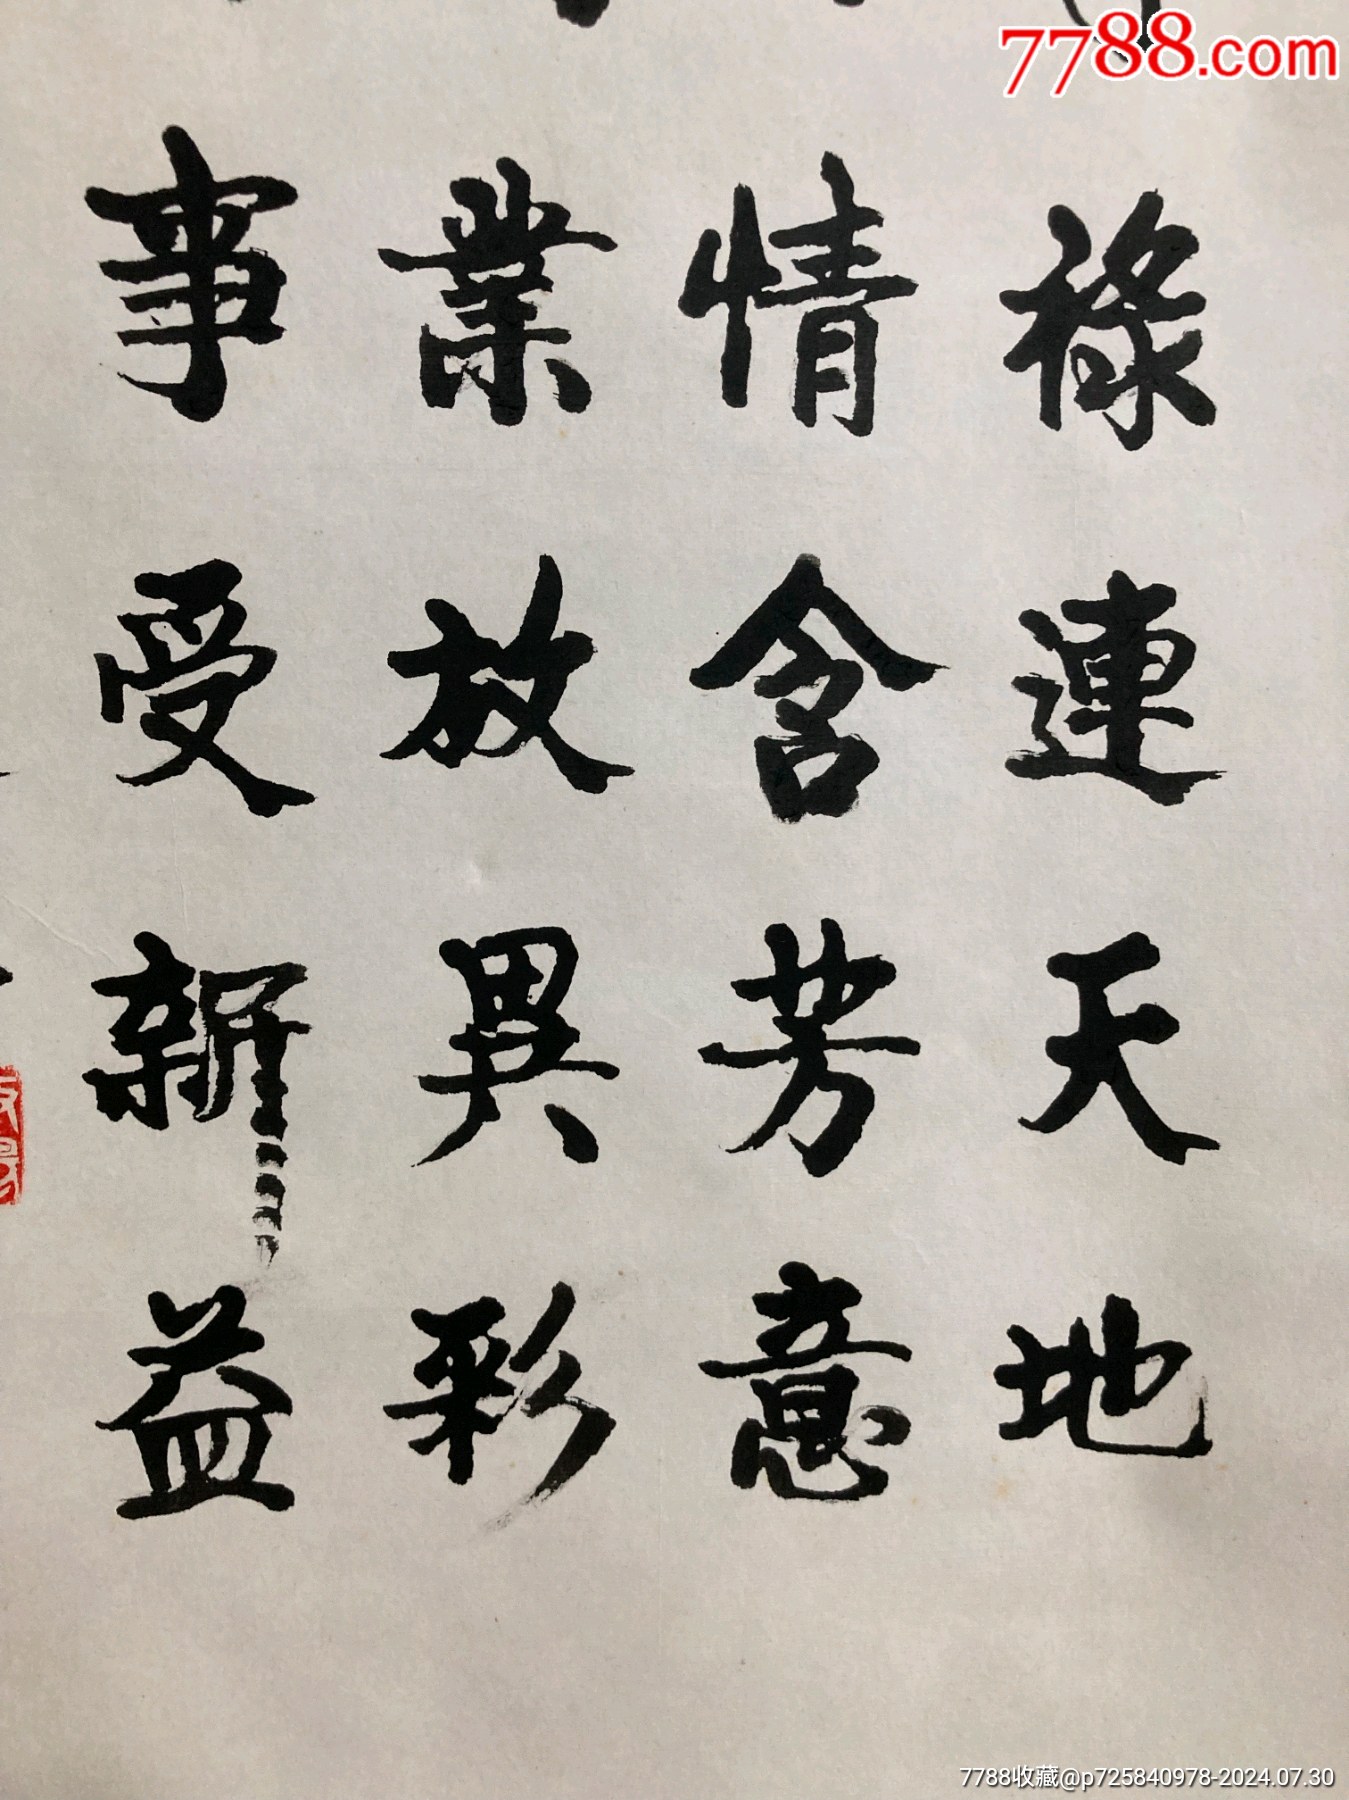 7788.com
祿連天地
情含芳意
業放異彩
事受新益
7788收藏@p725840978-2024.07.30